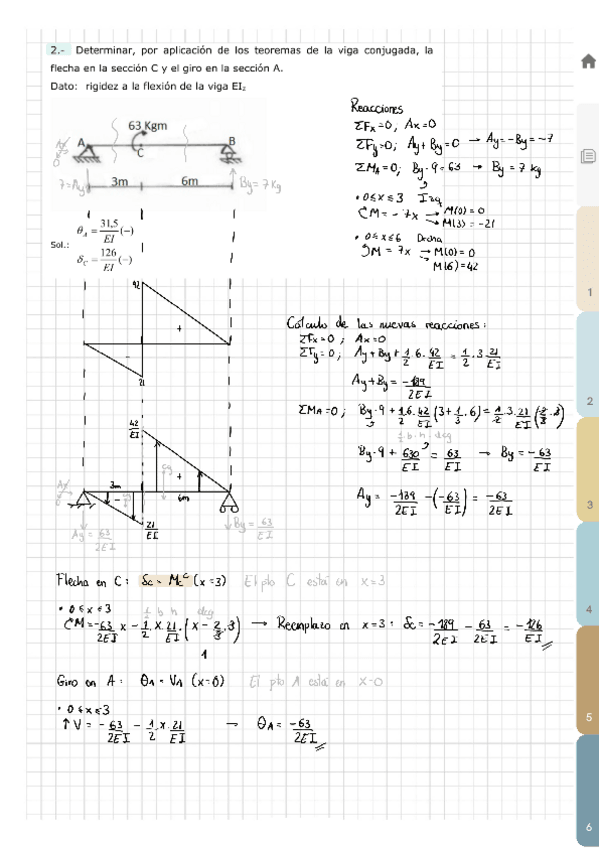 2.- Determinar, por aplicación de los teoremas de la viga conjugada, la
flecha en la sección C y el giro en la sección A.
Dato: rigidez a la flexión de la viga EI₂
63 Kgm
A C B
7=Ay 3m 6m By=7 kg
Sol.: θA = 31,5/EI (-)
δC = 126/EI (-)
Reacciones
ΣFx=0; Ax=0
ΣFy=0; Ay+By=0 → Ay=-By=-7
ΣMA=0; By·9=63 → By=7 kg
• 0≤x≤3 Izq
M=-7x → M(0)=0
→ M(3)=-21
• 0≤x≤6 Drcha
M=7x → M(0)=0
M(6)=42
42
+
-
21
Cálculo de las nuevas reacciones:
ΣFx=0; Ax=0
ΣFy=0; Ay+By+1/2·6·42/EI=1/2·3·21/EI
Ay+By=-189/2EI
ΣMA=0; By·9+1/2·6·42/EI(3+1/3·6)=1/2·3·21/EI(2/3·3)
1/2 b·h · dcg
By·9+630/EI=63/EI → By=-63/EI
Ay=-189/2EI-(-63/EI)=-63/2EI
42/EI
3m + 6m
-
21/EI
Ay=63/2EI By=63/EI
Flecha en C: δc=Mc^C (x=3) El pto C está en x=3
• 0≤x≤3 1/2 b h dcg
M=-63/2EI x-1/2·x·21/EI·(x-2/3·3) → Reemplazo en x=3: δc=-189/2EI-63/2EI=-126/EI
1
Giro en A: θA=VA (x=0) El pto A está en x=0
• 0≤x≤3
↑V=-63/2EI-1/2·x·21/EI → θA=-63/2EI
1
2
3
4
5
6